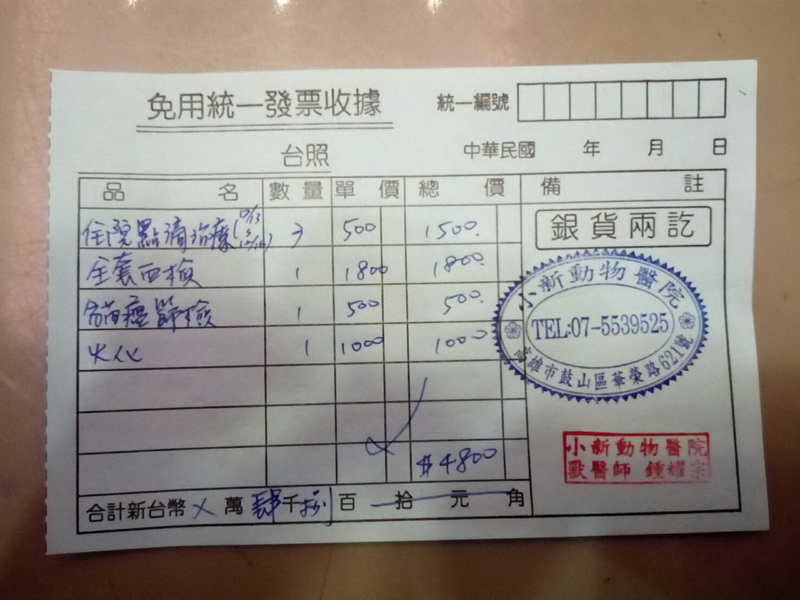 免用統一發票收據
統一編號
台照
中華民國 年 月 日
品 名 數 量 單 價 總 價 備 註
住院點滴治療 3 500 1500.
全套血檢 1 1800 1800.
貓瘟篩檢 1 500 500.
火化 1 1000 1000
$4800
合計新台幣 x 萬 肆 千 捌 百 拾 元 角
銀貨兩訖
小新動物醫院
TEL:07-5539525
高雄市鼓山區華榮路621號
小新動物醫院
獸醫師 鍾耀宗